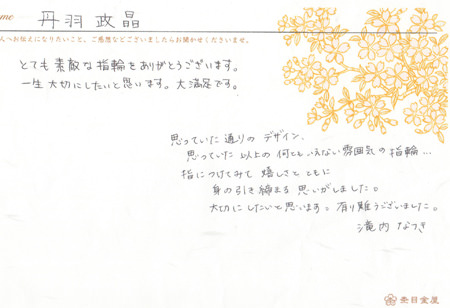 丹羽 政晶
んへお伝えになりたいこと、ご感想などございましたらお聞かせくださいませ。
とても素敵な指輪をありがとうございます。
一生大切にしたいと思います。大満足です。
思っていた通りの デザイン、
思っていた以上の 何ともいえない 雰囲気の 指輪…
指につけてみて 嬉しさと ともに
身の引き締まる 思いがしました。
大切にしたいと思います。有り難うございました。
滝内 なつき
杢目金屋